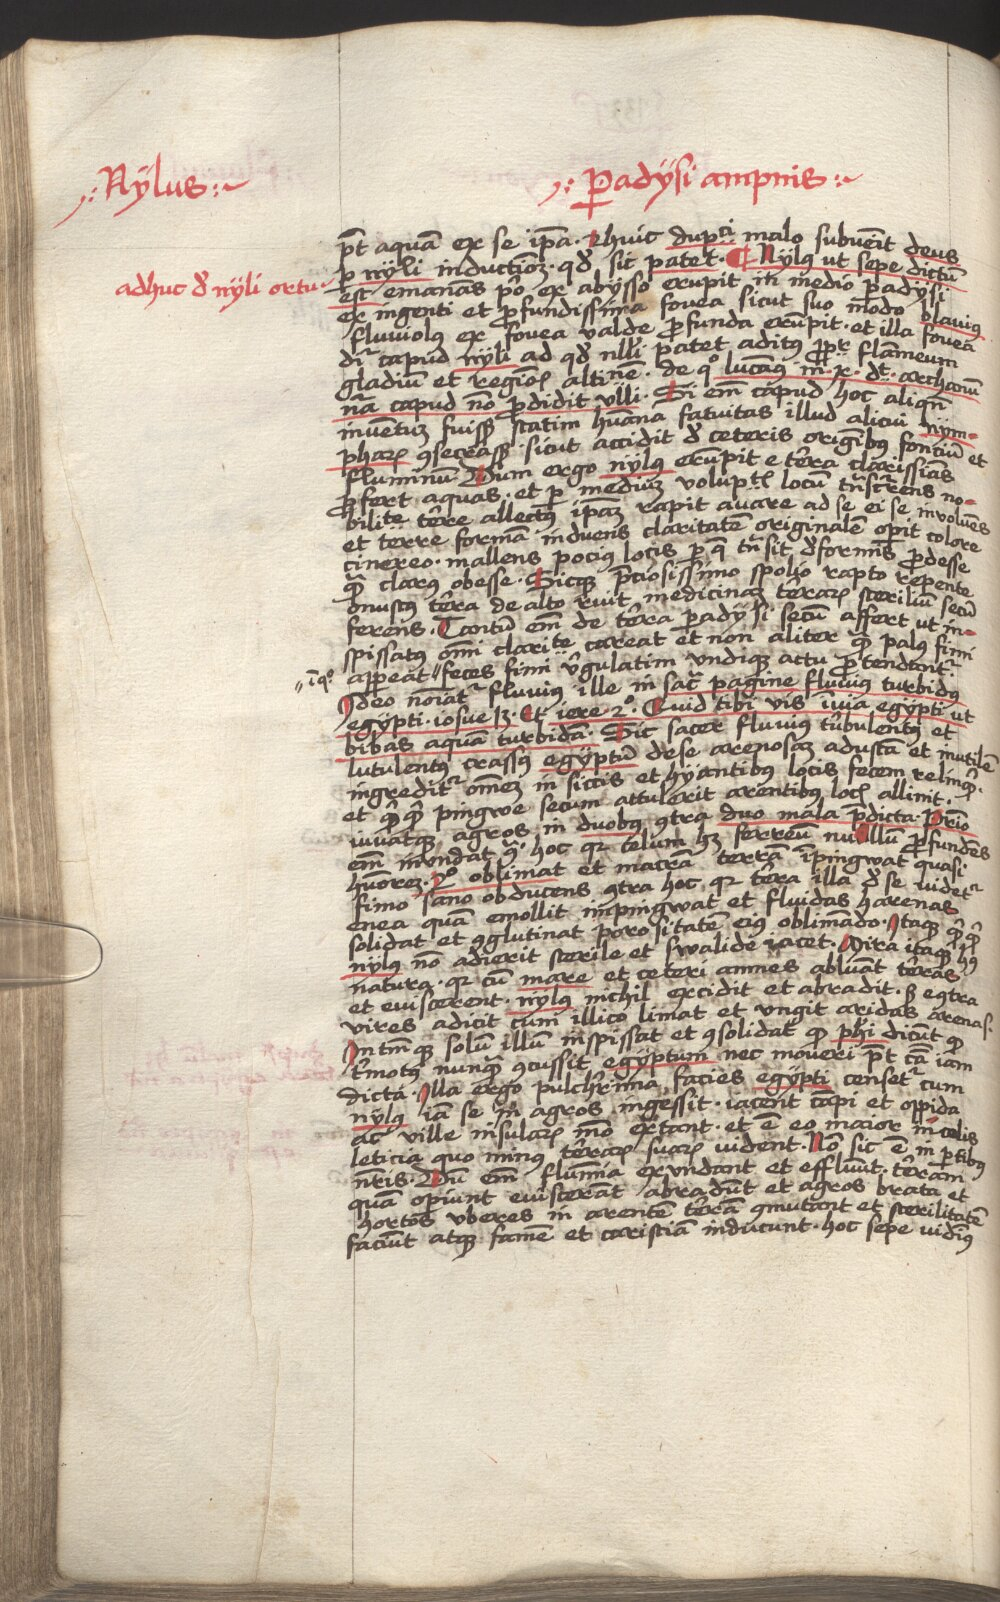 Nÿlus
Padÿsi ampnis
adhuc d̄ nÿli ortu
pt̄ aquā ex se ip̄a · Et huic dupci malo subuēit deus
p nÿli inductioꝫ · qđ sic patet · Nÿlꝰ ut sepe dictū
est emanās p̄o ex abÿsso erupit in medio padÿsi
ex ingenti et profundissima fouea sicut suo modo blauius
fluuiolꝰ ex fouea valde profunda erūpit · et illa fouea
dr̄ capud nÿli ad qđ nlli patet aditꝰ ppt̄ flāmeum
gladiū et regiōꝭ altiᷓnē · de qͦ lucanꝰ in x · dt̄ · archanū
nᷓa capud nō prodidit vlli · Si em̄ capud hoc aliqn̄
inuentuꝫ fuissꝫ statim huᷓana fatuitas illud alicui nÿm-
pharꝫ ꝯsecrassꝫ · sicut accidit d̄ ceteris originibꝰ fontiū et
fluminū · Dum ergo nÿlꝰ erupit e terra clarissimas
profert aquas · et p mediuꝫ voluptꝭ locū tn̄scurrens no-
bilitate terre allectꝰ ipaꝫ rapit auare ad se et se inuoluēs
et terre formā induens claritatē originalē opit colore
cinereo · mallens pocius locis p q̄ tn̄sit d̄formis prodesse
qᷓ clarꝰ obesse · Sicqꝫ p̄ciosissimo spolio rapto repente
onustꝰ terra de alto ruit medicinaꝫ terarꝫ steriliū secū
ferens · Tantū em̄ de terra padÿsi secū affert ut in-
spissatꝰ om̄i claritᷓe careat et non aliter qᷓ palꝰ fimi
appeat // feces fimi v̄gulatim vndiqꝫ actu protendantur
// īqͦ
Ideo noīatr̄ fluuius ille in sacᷓ pagine fluuius turbidꝰ
egÿpti · iosue 13 · Et iere · 2ͦ · Quid tibi vis ī via egÿpti ut
bibas aquā turbidā · Sic sacer fluuius turbulentꝰ et
lutulentꝰ crassꝰ egÿptū dese arenosaꝫ adustā et inutilē
ingreditr̄ om̄eꝫ in siccis et hÿantibꝰ locis fecem relinqͥ
et qͥqͥ pingwe secum attulerit arentibus locꝭ allinit ·
iuuatqꝫ agros in duobꝰ ꝯtra duo mala p̄dicta · Prīo
em̄ inundat qͣ hoc qr telum hꝫ ferreū nullū profundens
hūoreꝫ · 2ͦ oblimat et macrā terrā īpingwat quasi
fimo sano obducens ꝯtra hoc qr terra illa d̄ se videtr̄
enea quā emollit impingwat et fluidas harenas
solidat et ꝯglutinat parositatē eius oblimādo · Itaqꝫ qͥqͥ
nÿlꝰ nō adierit sterile et swalide iacet · Mira itaqꝫ hꝫ
natura · qr cū mare et ceteri amnes abluāt terras
et euiscerent · nÿlꝰ nichil excidit et abradit · sꝫ eꝯtra
vires adicit cum illico limat et vngit aridas arenas ·
Intm̄qꝫ solū illū inspissat et ꝯsolidat qͦ phī dicūt qͦ
tr̄motꝰ nunqᷓ ꝯcussit egÿptum nec moueri pt̄ cā iam
dicta · Illa ergo pulchrͬima facies egÿpti censetr̄ cum
nÿlꝰ iā se in agros ingessit · iacent cāpi et oppida
ac ville insularꝫ mō extant · et ē eo maior incolis
leticia quo minus terrarꝫ suarꝫ vident · Nō sic ē in ptibꝰ
nr̄is · Dū em̄ flumina exundant et effluūt · terram
quā opiunt euiscerāt abradūt et agros brata et
hortos vberes in arentē terrā ꝯmutant et sterilitatē
faciūt atqꝫ famē et caristiā inducunt · hoc sepe vidimꝰ